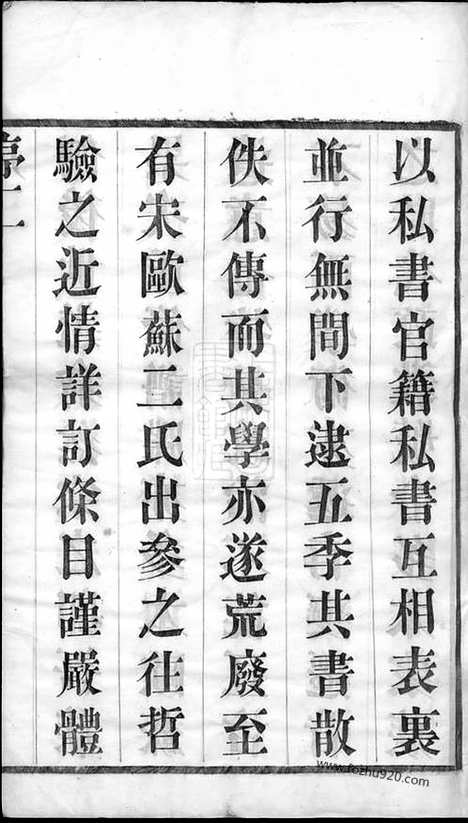 以私書官籍私書互相表裏
並行無間下逮五季其書散
佚不傳而其學亦遂荒廢至
有宋歐蘇二氏出參之往哲
驗之近情詳訂條目謹嚴體
www.fozhu920.com